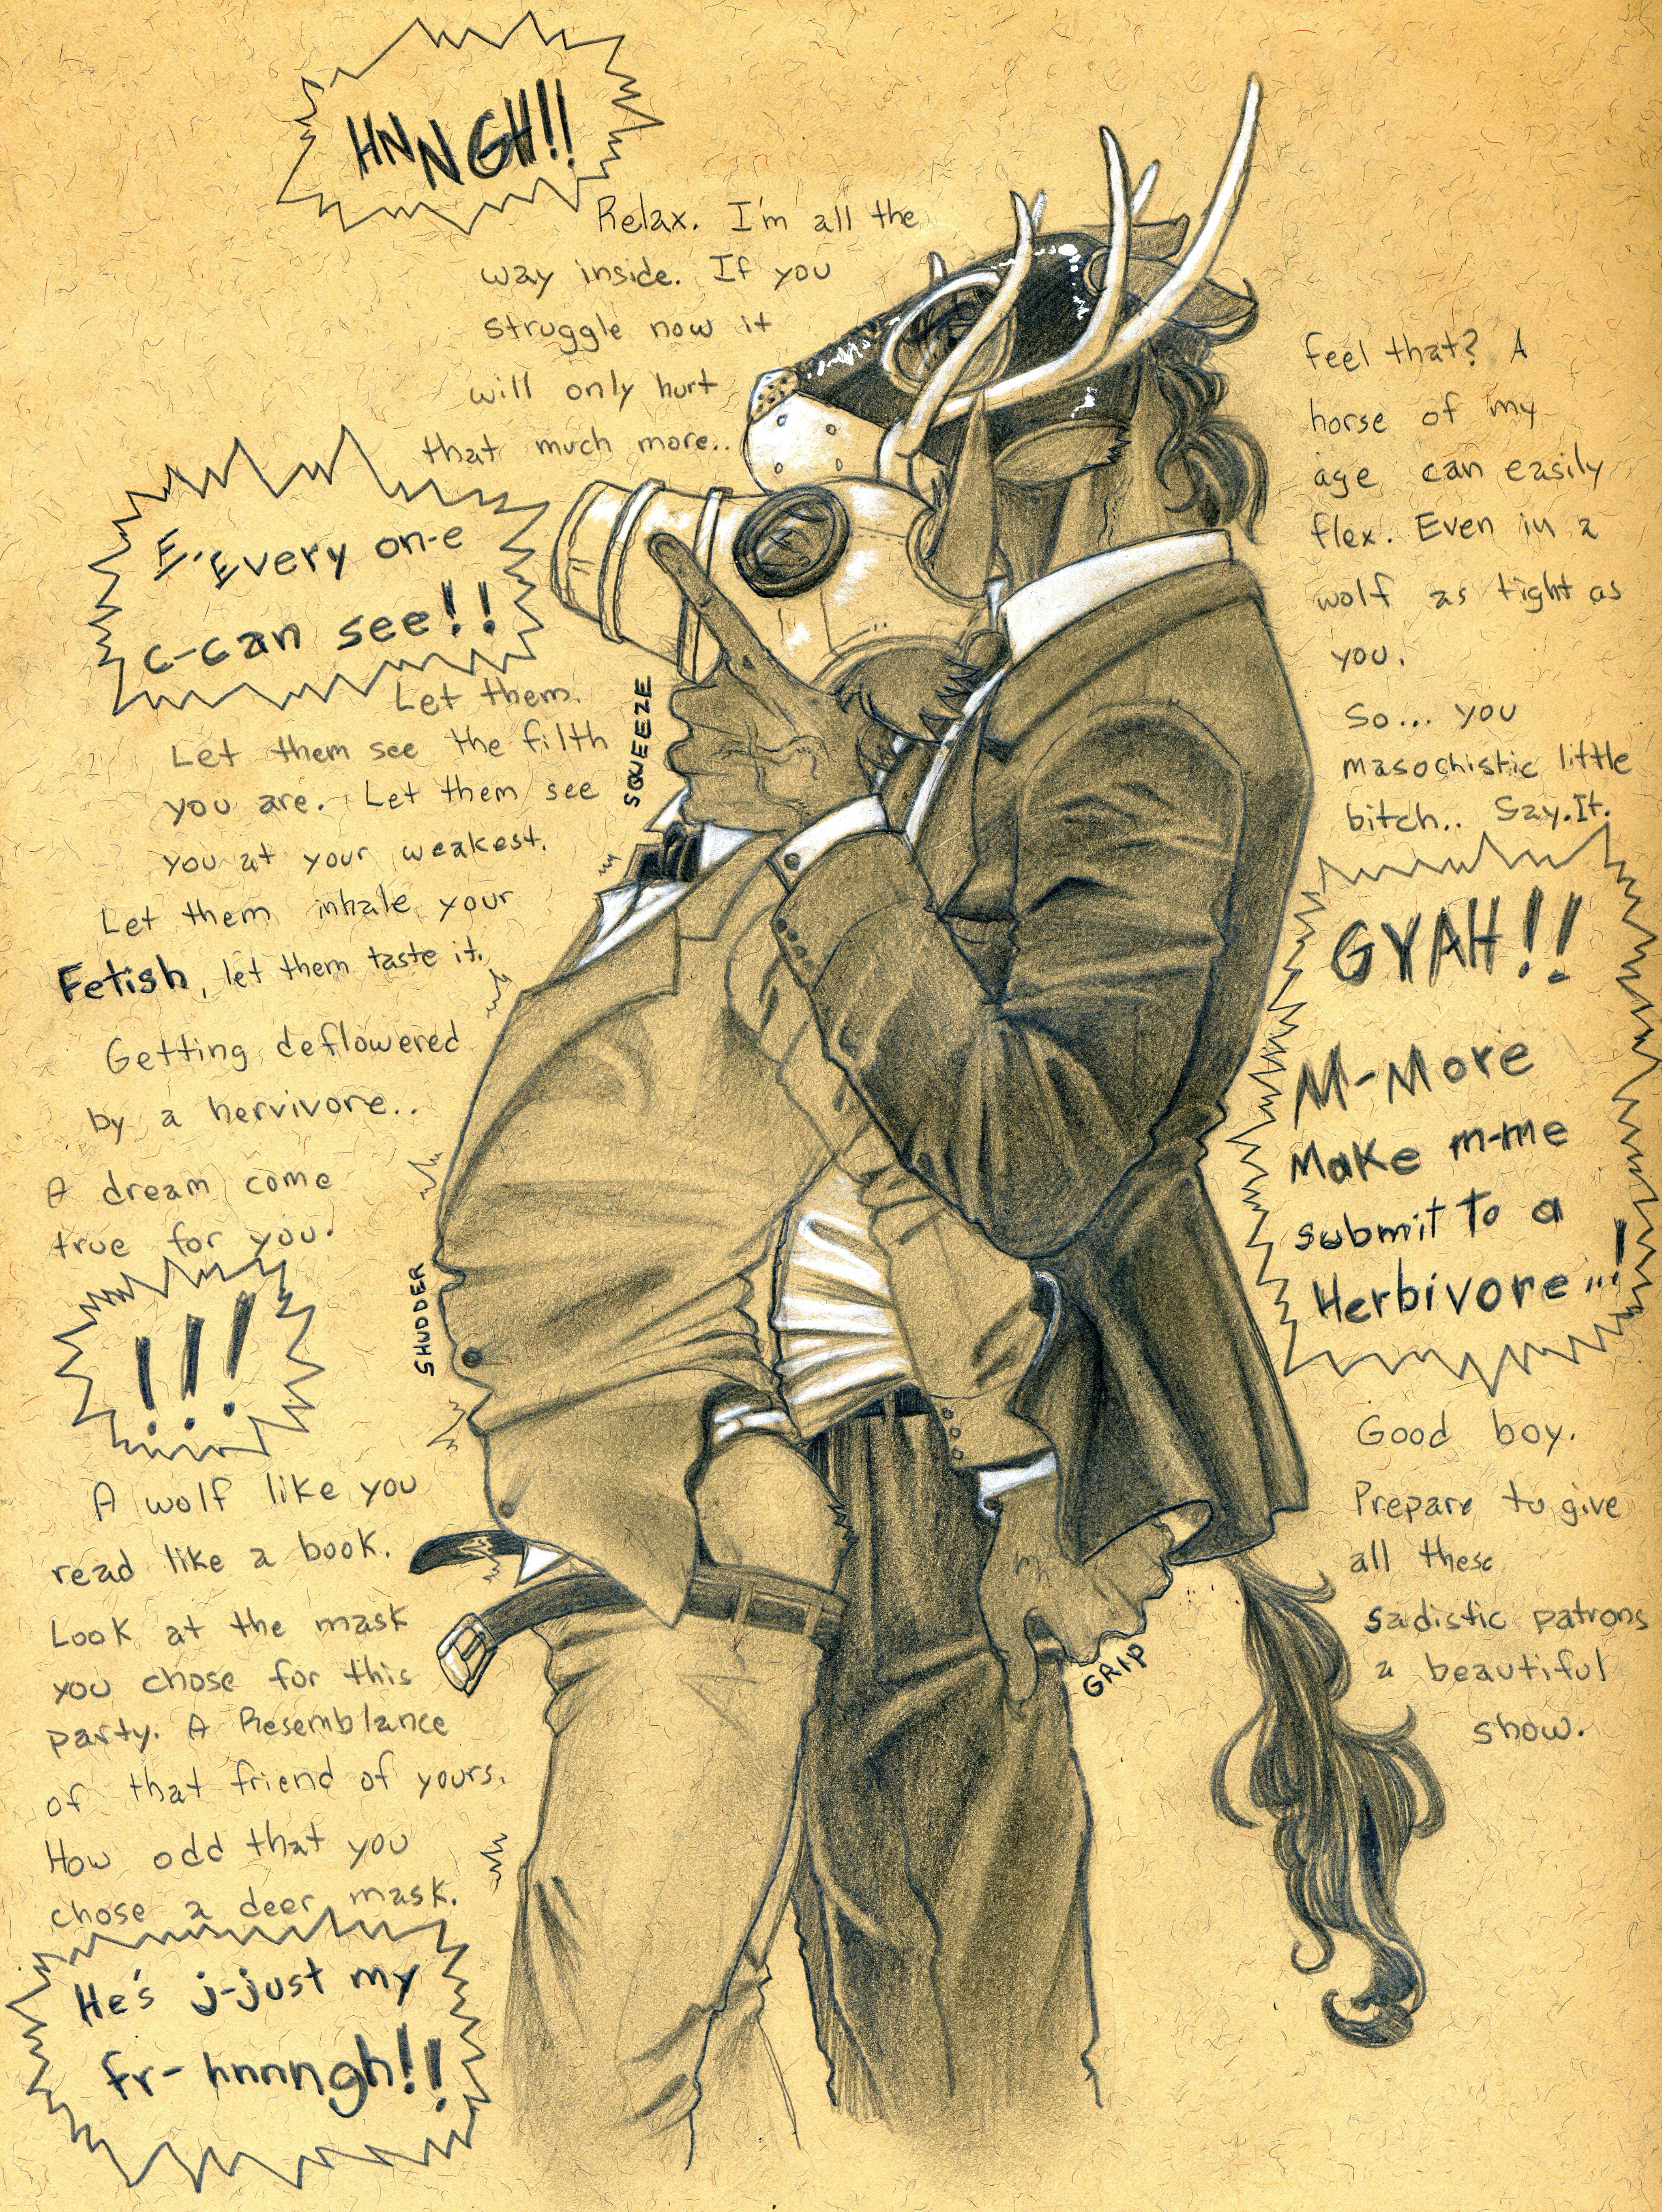 HNNGH!!
Relax. I'm all the
way inside. If you
struggle now it
will only hurt
that much more..
E.'Every on-e
c-can see!!
Let them.
Let them see the filth
you are. Let them see
you at your weakest.
Let them inhale your
Fetish, let them taste it.
Getting deflowered
by a hervivore..
A dream come
true for you.
!!!
A wolf like you
read like a book.
Look at the mask
you chose for this
party. A Resemblance
of that friend of yours.
How odd that you
chose a deer mask.
He's j-just my
fr- hnnngh!!
SQUEEZE
SHUDDER
GRIP
feel that? A
horse of my
age can easily
flex. Even in a
wolf as tight as
you.
So... you
masochistic little
bitch.. Say.It.
GYAH!!
M-More
Make m-me
submit to a
Herbivore...!
Good boy.
Prepare to give
all these
sadistic patrons
a beautiful
show.